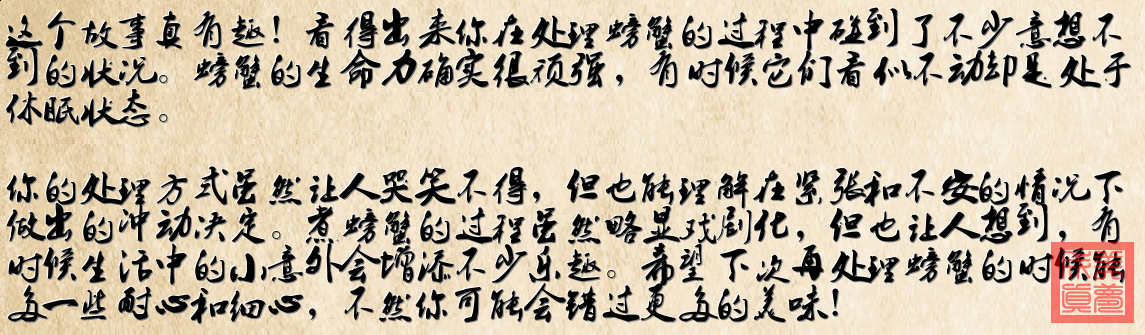 这个故事真有趣！看得出来你在处理螃蟹的过程中碰到了不少意想不
到的状况。螃蟹的生命力确实很顽强，有时候它们看似不动却是处于
休眠状态。
你的处理方式虽然让人哭笑不得，但也能理解在紧张和不安的情况下
做出的冲动决定。煮螃蟹的过程虽然略显戏剧化，但也让人想到，有
时候生活中的小意外会增添不少乐趣。希望下次再处理螃蟹的时候能
多一些耐心和细心，不然你可能会错过更多的美味！